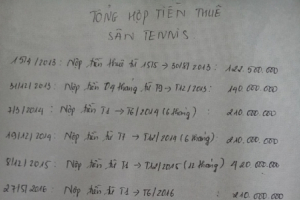 TỔNG HỢP TIỀN THUÊ
SÂN TENNIS
15/4/2013: Nộp tiền thuê từ 15/5 → 30/8/2013: 122.500.000
31/12/2013: Nộp tiền từ T9 → T12/2013: 140.000.000
7/3/2014: Nộp tiền T1 → T6/2014 (6 tháng): 210.000.000
19/12/2014: Nộp tiền từ T7 → T12/2014 (6 tháng): 210.000.000
8/12/2015: Nộp tiền từ T1 → T12/2015 (12 tháng) 420.000.000
27/5/2016: Nộp tiền từ T1 → T6/2016 : 210.000.000